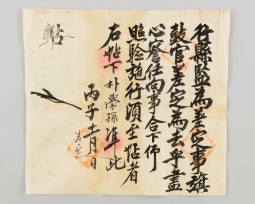 帖
行縣監為差定事旗
鼓官差定為去乎盡
心察任向事合下仰
照驗施行須至帖者
右帖下朴學孫準此
丙子十一月日